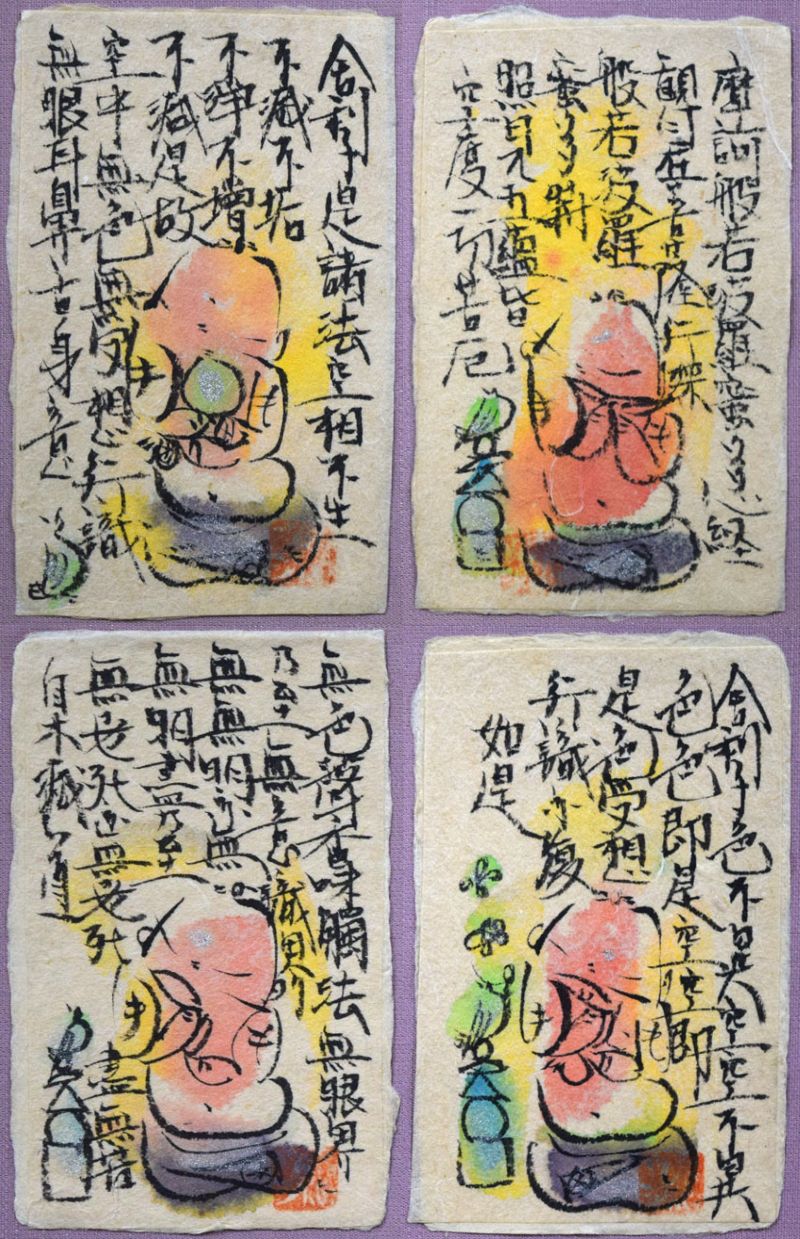 摩訶般若波羅蜜多心経
観自在菩薩行深
般若波羅
蜜多時
照見五蘊皆
空度一切苦厄
舎利子色不異空空不異
色色即是空空即
是色受想
行識亦復
如是
舎利子是諸法空相不生
不滅不垢
不浄不増
不減是故
空中無色無受想行識
無眼耳鼻舌身意
無色声香味觸法無眼界
乃至無意識界
無無明亦無
無明盡乃至
無老死亦無老死盡無苦
集滅道